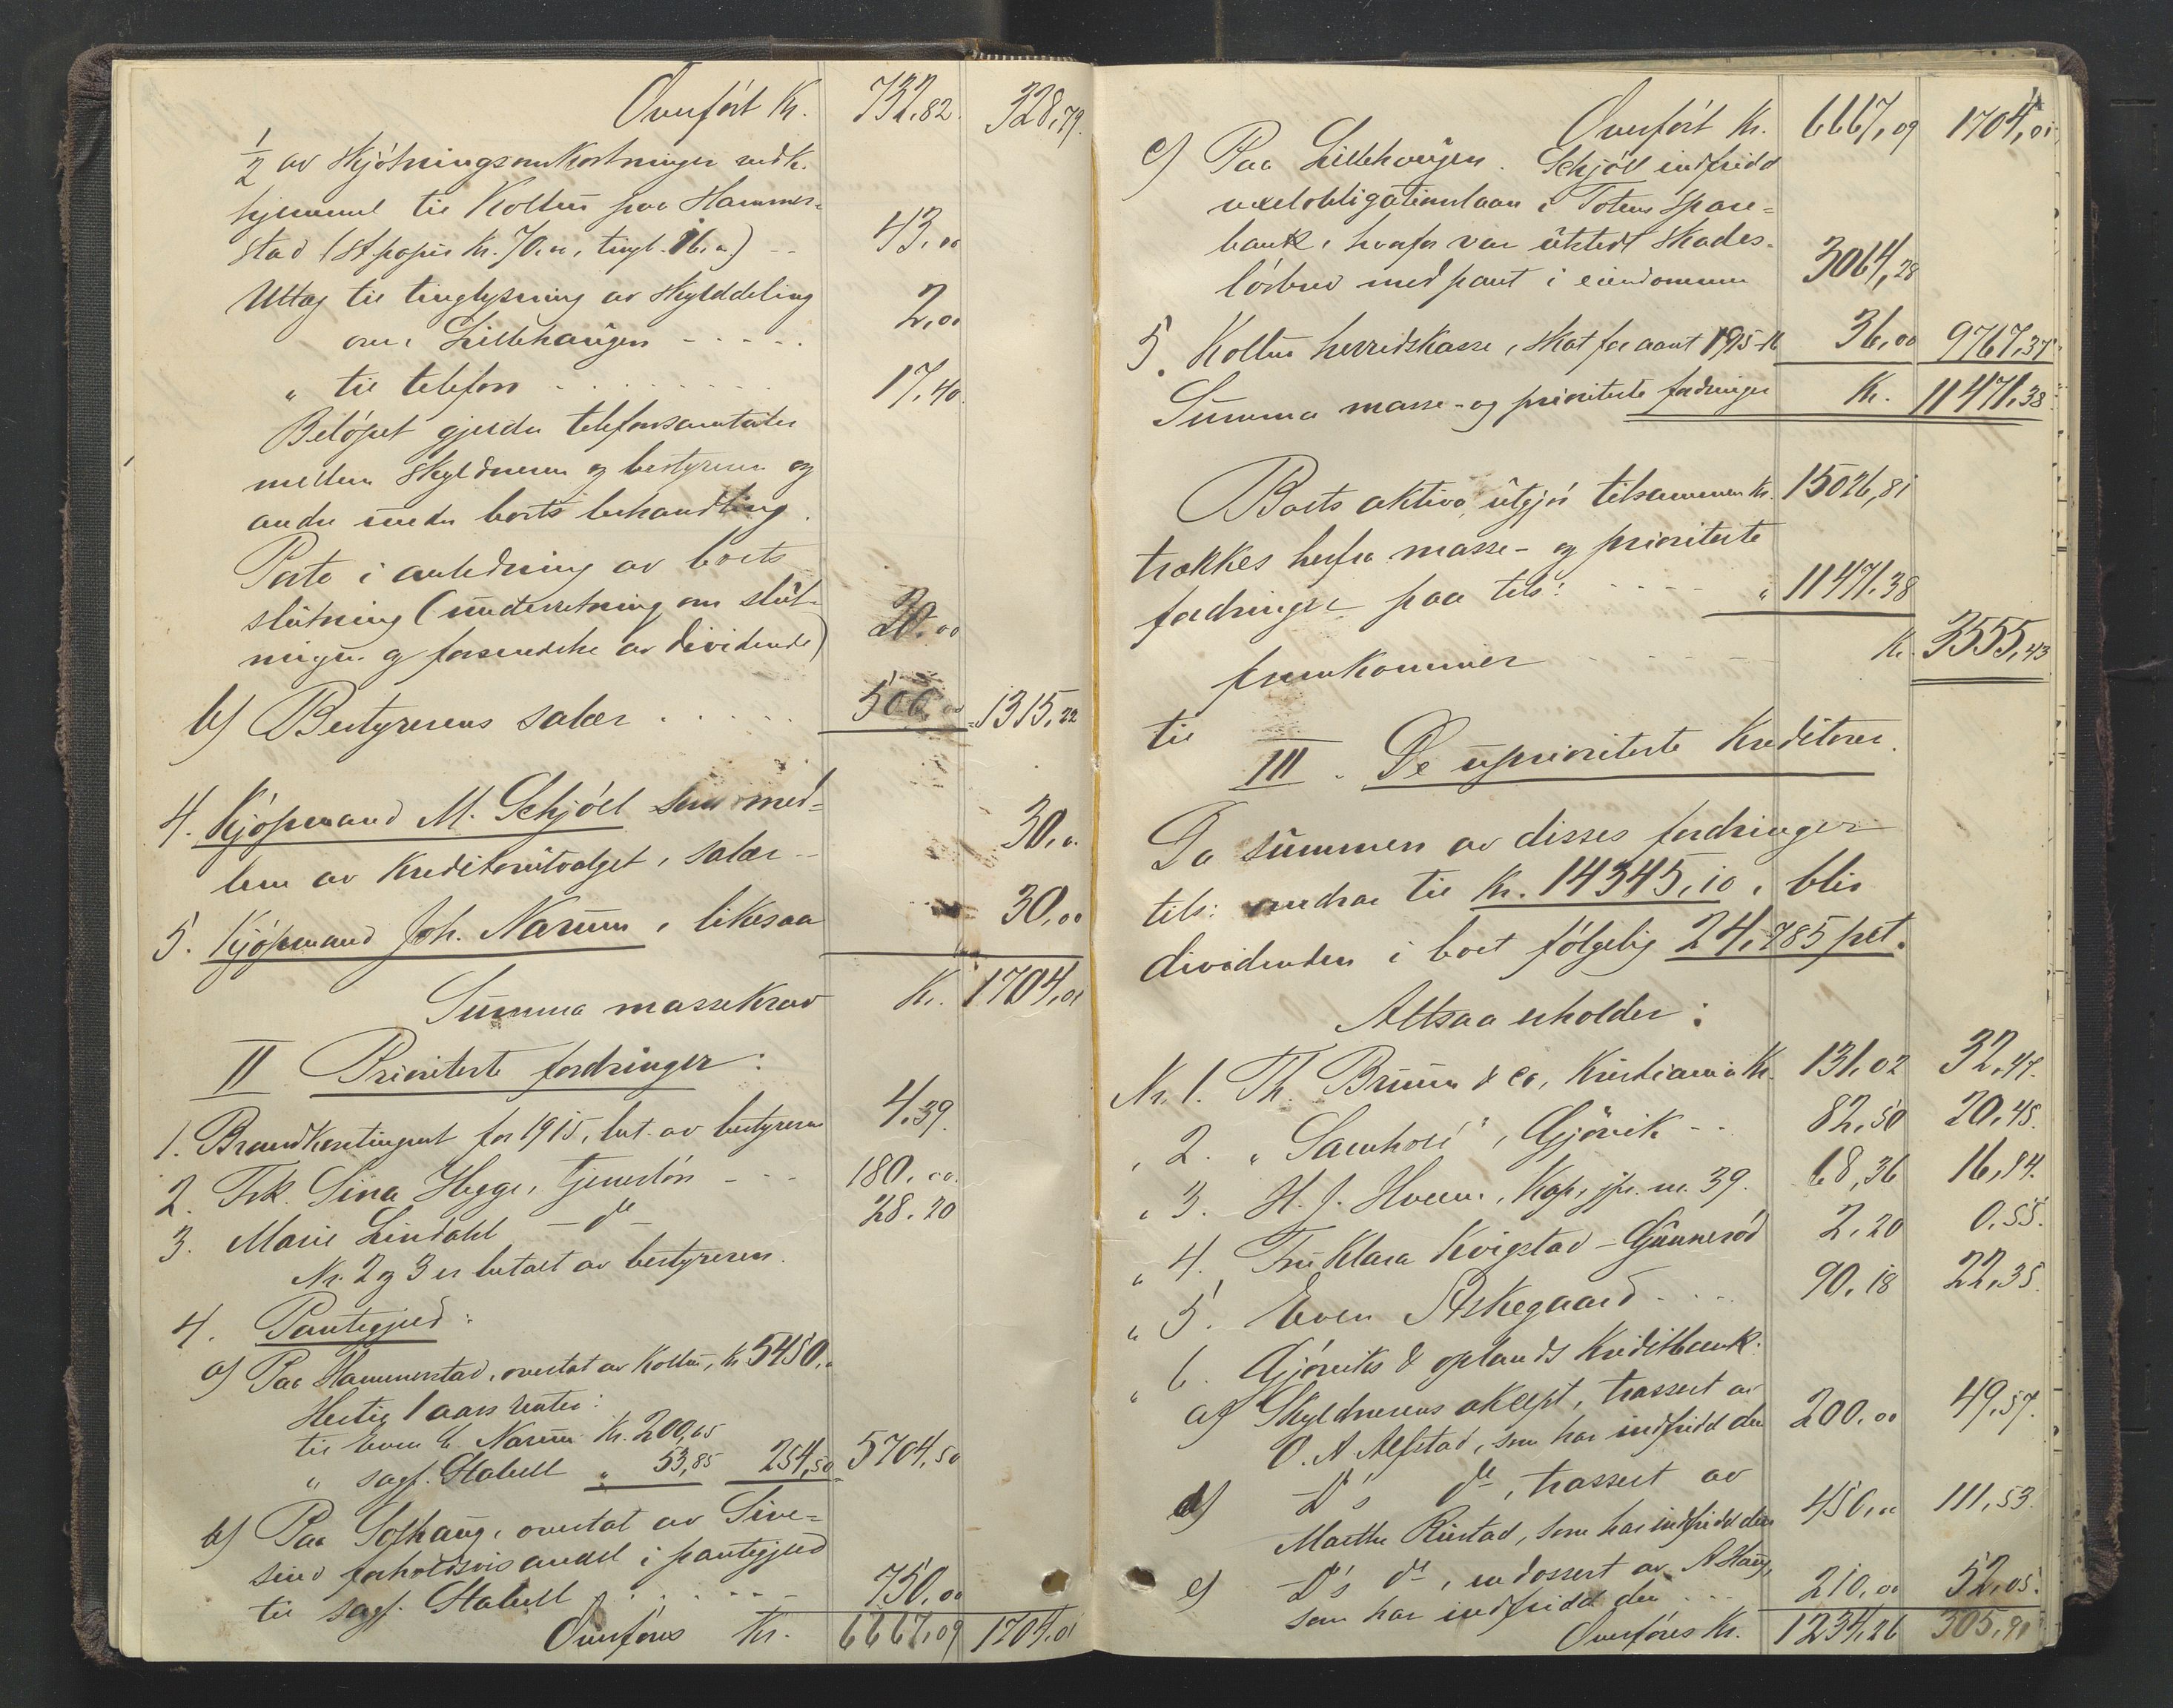 Overført Kr. 732,82. 328,79.
1/2 av skjøtningsomkostninger vedk.
hjemmel til Kolbu paa Hammer-
stad (st.papir Kr. 70.00, tingl. 16.00) -- 43,00
Utlæg til tinglysning av skylddeling
over Lillehaugen - - - - - 2,00
" til telefon . . . . . . . . . 17,40.
Beløpet gjelder telefonsamtaler
mellem skyldneren og bestyreren og
andre under boets behandling.
Porto i anledning av boets
slutning (underretning om slut-
ningen og forsendelse av dividende) 20,00
b) Bestyrerens salær . . . . . 500,00 = 1315,22
4. Kjøpmand M. Schjöll som med-
lem av kreditorutvalget, salær -- 30,0.
5. Kjøpmand Joh. Narum, likesaa 30,00
Summa massekrav Kr. 1704,01
II Prioriterte fordringer:
1. Brandkontingent for 1915, bet. av bestyreren 4.39.
2. Frk. Sina Hegge, tjenerløn - - - 180.00.
3. Marie Lindahl - do - 28.20
Nr. 2 og 3 er betalt av bestyreren.
4. Pantegjeld:
a) Paa Hammerstad, overtat av Kolbu, Kr. 5450,00
Hertil 1 aars renter:
til Even E. Narum Kr. 200,65
" sagf. Stabell " 53,85 254,50 5704,50
b) Paa Solhaug, overtat av Sive-
sind forholdsvis andel i pantegjeld
til sagf. Stabell . . . . . . 750,00
Overføres Kr. 6667,09 1704,01
Overført Kr. 6667,09 1704,01
c) Paa Lillehaugen. Schjöll indfridd
vexelobligationslaan i Totens Spare-
bank, hvorfor var utstedt skades-
løsbrev med pant i eiendommen 3064,28
5. Kolbu herredskasse, skat for aaret 1915-16 36,00 9767,37
Summa masse- og prioriterte fordringer Kr. 11471,38
Boets aktiva utgjør tilsammen Kr. 15026,81
trækkes herfra masse- og prioriterte
fordringer paa tils: - - - - " 11471.38
fremkommer - - - - - Kr. 3555,43
til
III. De uprioriterte kreditorer.
Da summen av disses fordringer
tils: andrar til Kr. 14345,10, blir
dividenden i boet følgelig 24,785 pct.
Altsaa erholder:
Nr. 1. Th. Bruun & Co, Kristiania Kr. 131,02 32,47.
" 2. "Samhold", Gjøvik -- 82,50 20,45.
" 3. H. J. Hveem, Kap, jfr. nr. 39. 68,36 16,94.
" 4. Fru Klara Kvigstad - Gunnerød 2,20 0,55.
" 5. Even Askegaard . . . . 90,18 22,35.
" 6. Gjøviks & oplands Kreditbank:
a) Skyldnerens aksept, trassert av
O. A. Alfstad, som har indfridd den 200,00 49,57.
d) D's do, trassert av
Marthe Rustad, som har indfridd den 450,00 111,53.
e) D's do, endossert av A. Haug,
som har indfridd den . . . 210,00 52,05.
Overføres Kr. 1234,26 305,91